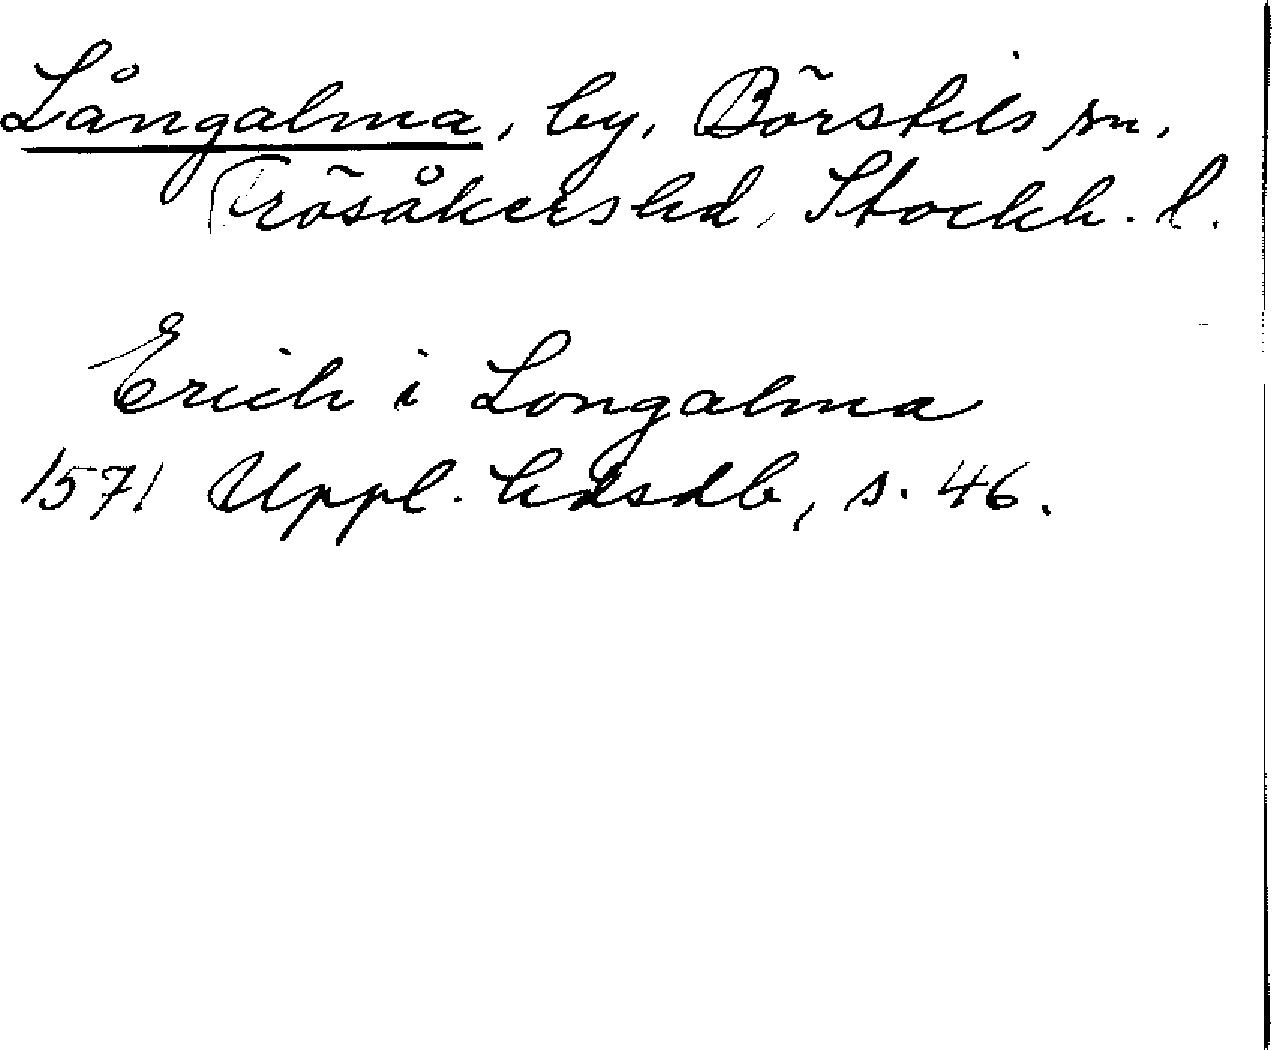 Långalma, by, Börstils sn,
Frösåkers hd, Stockh. l.
Erich i Longalma
1571 Uppl. hdsdb, s. 46.